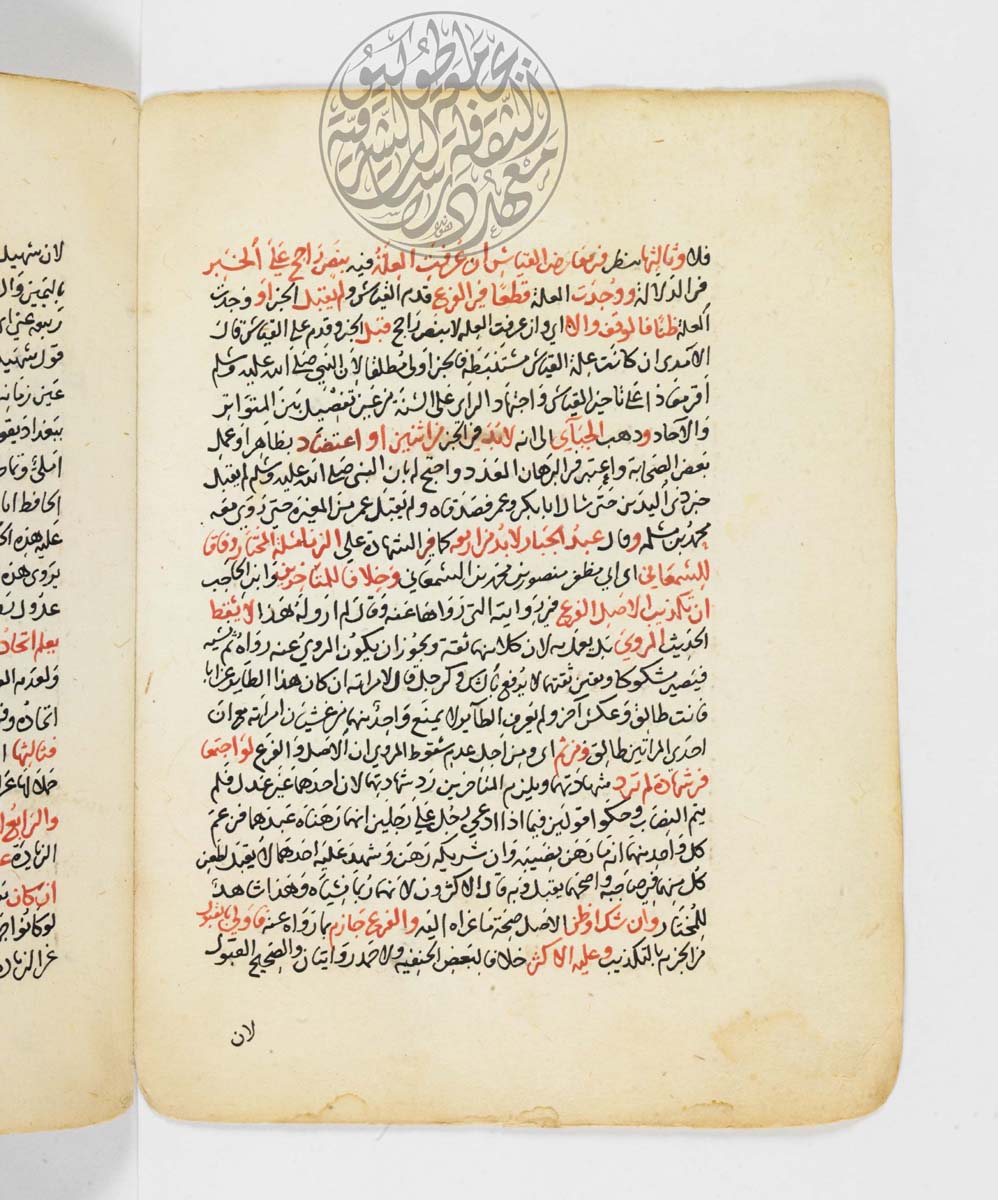 معهد دراسات الثقافة الشرقية
جامعة طوكيو
فلا وثالثها ينظر في معارض القياس ان عرفت العلة فيه بنص راجح على الخبر
في الدلالة ووجدت العلة قطعا في الفرع قدم القياس ولم يقبل الخبر او وجدت
العلة ظنا فالوقف والا اي وان عرفت العلة لا بنص راجح قبل الخبر وقدم على القياس قال
الآمدي ان كانت علة القياس مستنبطة فالخبر اولى مطلقا لان النبي صلى الله عليه وسلم
اقر معاذا على تاخير القياس واجتهاد الراي على السنة من غير تفصيل بين المتواتر
والآحاد وذهب الجبآي الى انه لابد في الخبر من اثنين او اعتضاد بظاهر او عمل
بعض الصحابة واعتبر في البرهان العدد واحتج له بان النبي صلى الله عليه وسلم لم يقبل
خبر ذي اليدين حتى سال ابا بكر وعمر فصدقاه ولم يقبل عمر من المغيرة حتى روى معه
محمد بن مسلمة وقال عبد الجبار لابد من اربعه كما في الشهادة على الزنا مسئلة المختار وفاقا
للسمعاني اي ابي مظفر منصور بن محمد بن السمعاني وخلافا للمتاخرين وابن الحاجب
ان تكذيب الاصل الفرع في روايته التي رواها عنه وقال لم اروله هذا لا يسقط
الحديث المروي بل يعمل به لان كلا منهما ثقة ويجوز ان يكون المروي عنه رواه ثم نسيه
فيصير مشكوكا ويقين ثقتهما لا يدفع بالشك وكرجل قال لامراته ان كان هذا الطاير غرابا
فانت طالق وعكس آخر ولم يعرف الطاير لا يمنع واحد منهما من غشيان امراته مع ان
احدى المراتين طالق ومن ثم اي ومن اجل عدم سقوط المروي ان الاصل والفرع لو اجتمعا
في شهادة لم ترد شهادتهما ويلزم المتاخرين رد شهادتهما لان احدهما غير عدل فلم
يتم النصاب وحكوا قولين فيما اذا ادعى رجل على رجلين انهما رهناه عبدهما فزعم
كل واحد منهما انه ما رهن نصيبه وان شريكه رهن وشهد عليه احدهما لا يقبل لطعن
كل منهما في صاحبه واصحهما يقبل وبه قال الاكثرون لانهما ربما نسياه وهذا شاهد
للمختار وان شك او ظن الاصل صحة ما عزاه اليه والفرع جازم بما رواه عنه فاولى بالقبول
من الجزم بالتكذيب وعليه الاكثر خلافا لبعض الحنفيه ولاحمد روايتان والصحيح القبول
لان
لان سهيل
باليمين وال
ربيعه عني
قول سهيل
ببغداد يقو
الحافظ ابا
عليه هذه
يروى هذه
بعلم اتحاد
فثالثها
والرابع
الزيادة
ان كان
عن الزيادة